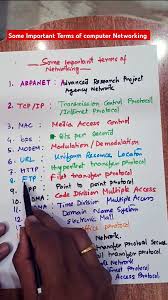 Some Important Terms of computer Networking
Some important terms of
Networking
1. ARPANET : Advanced Research Project
Agency Network
2. TCP/IP : Transmission Control Protocol
/Internet Protocol
3. MAC : Media Access Control
4. bps : Bits per second
5. MODEM : Modulation / Demodulation
6. URL : Uniform Resource Locator
7. HTTP : Hypertext transfer Protocol
8. FTP : File transfer protocol
9. PPP : Point to point protocol
Code Division Multiple Access
Time Division Multiple Access
Domain Name System
Electronic
Protocol
transfer Protocol
Protocol